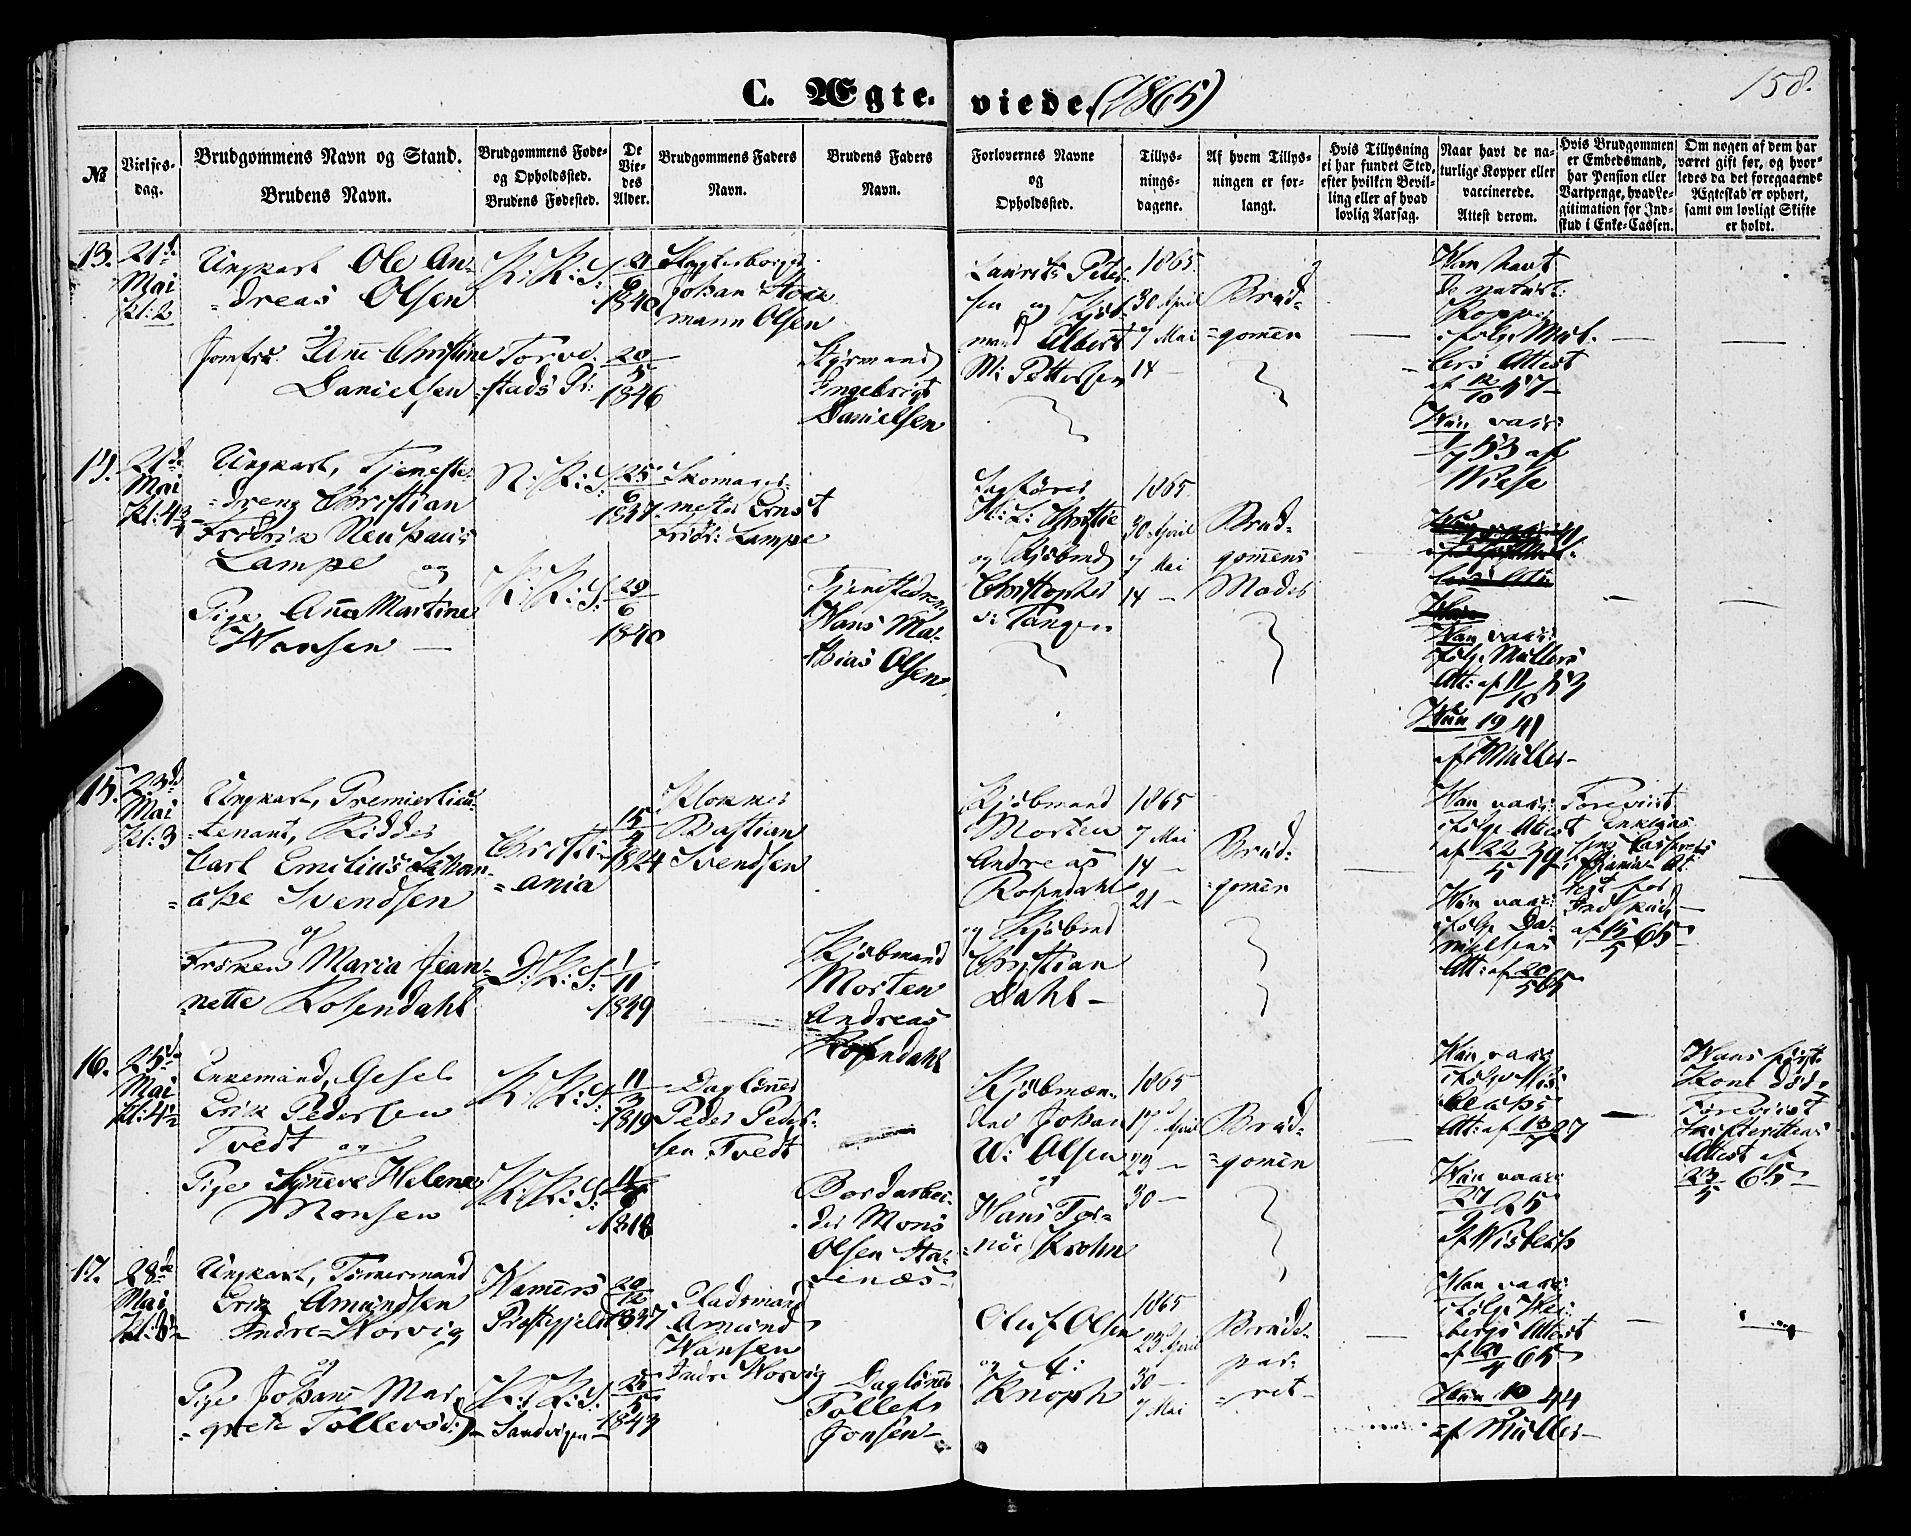 C. Ægte- viede. (1865)
158.
№
Vielses-
dag.
Brudgommens Navn og Stand.
Brudens Navn.
Brudgommens Føde-
og Opholdssted.
Brudens Fødested.
De
Vie-
des
Alder.
Brudgommens Faders
Navn.
Brudens Faders
Navn.
Forlovernes Navne
og
Opholdssted.
Tillys-
nings-
dagene.
Af hvem Tillys-
ningen er for-
langt.
Hvis Tillysning
ei har fundet Sted,
efter hvilken Bevil-
ling eller af hvad
lovlig Aarsag.
Naar havt de na-
turlige Kopper eller
vaccinerede.
Attest derom.
Hvis Brudgommen
er Embedsmand,
har Pension eller
Vartpenge, hvad Le-
gitimation for Ind-
skud i Enke-Cassen.
Om nogen af dem har
været gift før, og hvor-
ledes da det foregaaende
Ægteskab er ophørt,
samt om lovligt Skifte
er holdt.
13.
21d
Mai
Kl: 2
Ungkarl Ole An-
dreas Olsen
og
Jomfru Ane Christine
Danielsen
K: K: S:
Torve-
stads Pr:
1840
20/5
1846
Johan Stock
mann Olsen
Styrmand
Engebrigt
Danielsen
Laurits Peter-
sen og Kjøb-
mand Albert
M: Pettersen
1865
30 April
7 Mai
14 -
Brud-
gomen
Han havt
de naturl:
Kopper
ifølge Møl-
lers Attest
af 12/10 47
Hun vacc:
1/7 53 af
Wiese
14.
21d
Mai
Kl: 4 3/4
Ungkarl, Tjeneste-
dreng Christian
Fredrik Neuhaus
Lampe og
Pige Anna Martine
Hansen
N: K: S:
K: K: S:
25/6
1847
29/6
1840
Skomager-
mester Ernst
Fridr: Lampe
Tjenestedreng
Hans Ma-
thias Olsen
Sagfører
H: L: Christie
og Kjøbmd
Christopher
d: Tangen
1865
30 April
7 Mai
14 -
Brud-
gomens
Moder
Han vacc:
ifølge Müllers
Att: af 11/10 53
Hun 19 41
af Müller
15.
23d
Mai
Kl: 3
Ungkarl, Premierlieu-
tenant, Ridder
Carl Emilius Johan-
Svendsen
og
Frøken Maria Jean-
nette Rosendahl
Christi-
ania
D: K: S:
15/4
1824
1/11
1839
Klokker
Bastian
Svendsen
Kjøbmand
Morten
Andreas
Rosendahl
Kjøbmand
Morten
Andreas
Rosendahl
og Kjøbmd
Christian
Dahl
1865
7 Mai
14 -
21 -
Brud-
gomen
Han vacc:
ifølge Attest
af 22/5 39
Hun vacc:
ifølge Da-
nielsens
Att: af 20/5 65
Forevist
Indskud
af 15/5 65
16.
25d
Mai
Kl: 4½
Enkemand, Gesel
Erik Pedersen
Tvedt og
Pige Synneve Helene
Monsen
K: K: S:
K: K: S:
11/3
1819
1818
Dagløner
Peder Peder-
sen Tvedt
Bordarbei-
der Mons
Olsen Sta-
denæs
Kjøbmæn-
dene Johan
W: Olsen
og
Hans Tor-
nøe Krohn
1865
17 April
23 -
30 -
Brud-
gomen
Han vacc:
ifølge
Att: af
Hun vacc:
Wisbech
Hans første
Kone død,
Forevist
Skifterettens
Attest af
23/5 65
17.
28de
Mai
Ungkarl, Tømmermand
Erik Amundsen
Indre-Norvig
og
Pige Johane Mar-
grete Tollevsd:
Hamers
Præstegjeld
K: K: S:
Sandvigen
20/12
1837
25/5
1843
Pladsmand
Amund
Hansen
Indre Norvig
Dagløner
Tollef
Jonsen
Oluf Olsen
og A:
Knoph
1865
23 April
30 -
7 Mai
Brude-
par-
ret
Han vacc:
ifølge Hei-
bergs Attest
af 20/4 65
Hun 10 44
af Müller